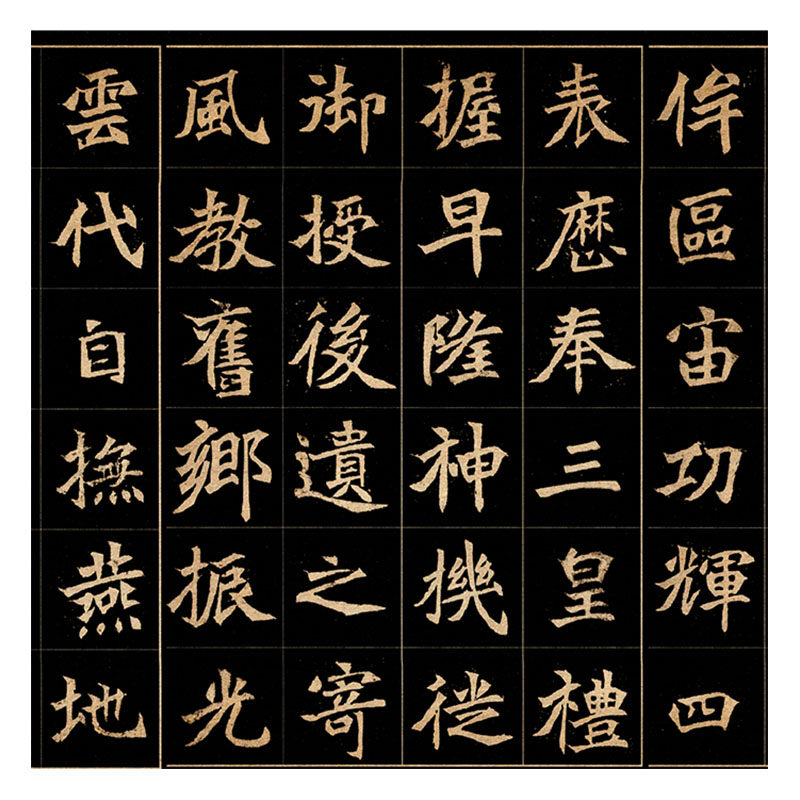 侔區宙功輝四
表歷奉三皇禮
握早隆神機徙
御授後遺之寄
風教舊鄉振光
雲代自撫燕地